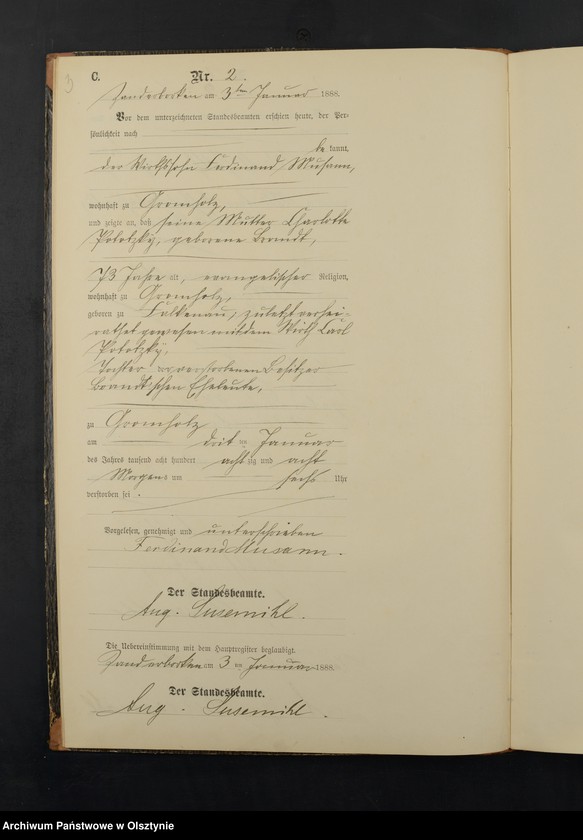 3
C. Nr. 2.
Sanderborken am 3ten Januar 1888.
Vor dem unterzeichneten Standesbeamten erschien heute, der Per-
sönlichkeit nach
be kannt,
der Wirthssohn Ferdinand Musann,
wohnhaft zu Gromholz,
und zeigte an, daß seine Mutter Charlotte
Polotzky, geborene Brandt,
73 Jahre alt, evangelischer Religion,
wohnhaft zu Gromholz,
geboren zu Falkenau, zuletzt verhei-
rathet gewesen mit dem Wirth Carl
Polotzky,
Tochter der verstorbenen Besitzer
Brandt'schen Eheleute,
zu Gromholz
am dritten Januar
des Jahres tausend acht hundert achtzig und acht
Morgens um sechs Uhr
verstorben sei.
Vorgelesen, genehmigt und unterschrieben
Ferdinand Musann.
Der Standesbeamte.
Aug. Susemihl.
Die Uebereinstimmung mit dem Hauptregister beglaubigt.
Sanderborken am 3 ten Januar 1888.
Der Standesbeamte.
Aug. Susemihl.
Archiwum Państwowe w Olsztynie